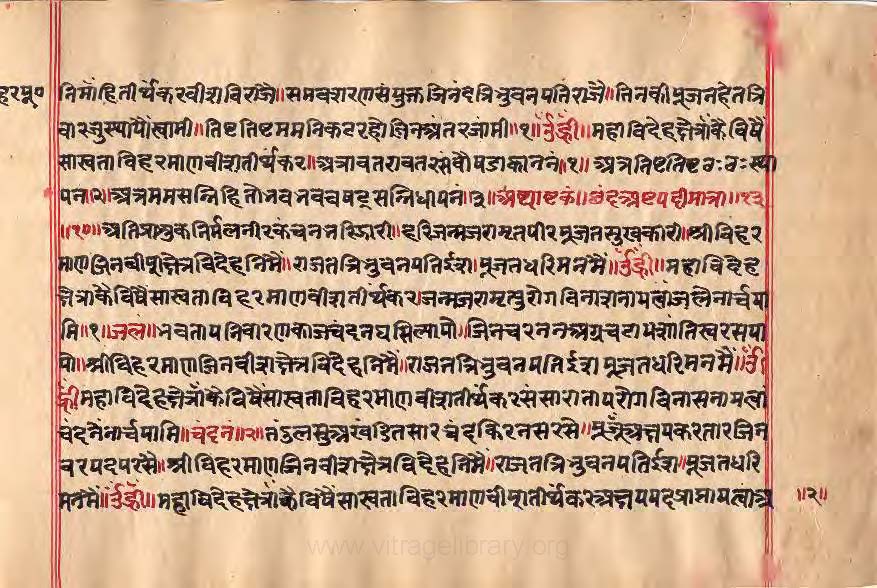 हरपू०
तिमांहितीर्थंकरवीशविराजै॥समवशरणसंयुक्तजिनंदत्रिभुवनपतिराजै॥तिनकीपूजनहेतत्रि
वारजुस्थापौंस्वामी॥तिष्टतिष्टममनिकटरहौजिनअंतरजांमी॥१॥ॐह्रीं॥महाविदेहक्षेत्रांकैविषैं
सास्वताविहरमाणवीशतीर्थंकर॥अत्रावतरावतरसंवौषडाकाननं॥१॥अत्रतिष्टतिष्टठःठःस्था
पन॥२॥अत्रममसन्निहितोभवभववषट्सन्निधीपनं॥३॥अथाष्टकं॥छंदअष्टपदीमात्रा॥१३
॥१०॥अतिप्राशुकनिर्मलनीरकंचनभरिजारी॥हरिजन्मजरामृतपीरपूजतसुखकारी॥श्रीविहर
माणजिनवीशक्षेत्रविदेहनिमैं॥राजतत्रिभुवनपतिईश॥पूजतधरिमनमैं॥ॐह्रीं॥महाविदेह
क्षेत्रांकैविषैंसास्वताविहरमाणवीशतीर्थंकर॥जन्मजरामृत्युरोगविनाशनायत्वांजलेनार्चया
मि॥१॥जलं॥भवतापनिवारणकाजचंदनघसिल्यापौ॥जिनचरननअग्रचढायशांतिस्वरसपा
पौ॥श्रीविहरमाणजिनवीशक्षेत्रविदेहनिमैं॥राजतत्रिभुवनपतिईशपूजतधरिमनमैं॥ॐ
ह्रींमहाविदेहक्षेत्रांकैविषैंसास्वताविहरमाणवीशतीर्थंकरसंसारातापरोगविनासनायत्वां
चंदनेनार्चयामि॥चंदनं॥२॥तंडुलसुअखंडितसारचंदकिरनसरसे॥पूजूंअक्षयकरतारजिन
चरपदपरसै॥श्रीविहरमाणजिनवीशक्षेत्रविदेहनिमैं॥राजतत्रिभुवनपतिईश॥पूजतधरि
मनमैं॥ॐह्रीं॥महाविदेहक्षेत्रांकैविषैंसास्वताविहरमाणवीशतीर्थंकरअक्षयपदप्राप्तायत्वांअ
॥२॥
www.vitragelibrary.org